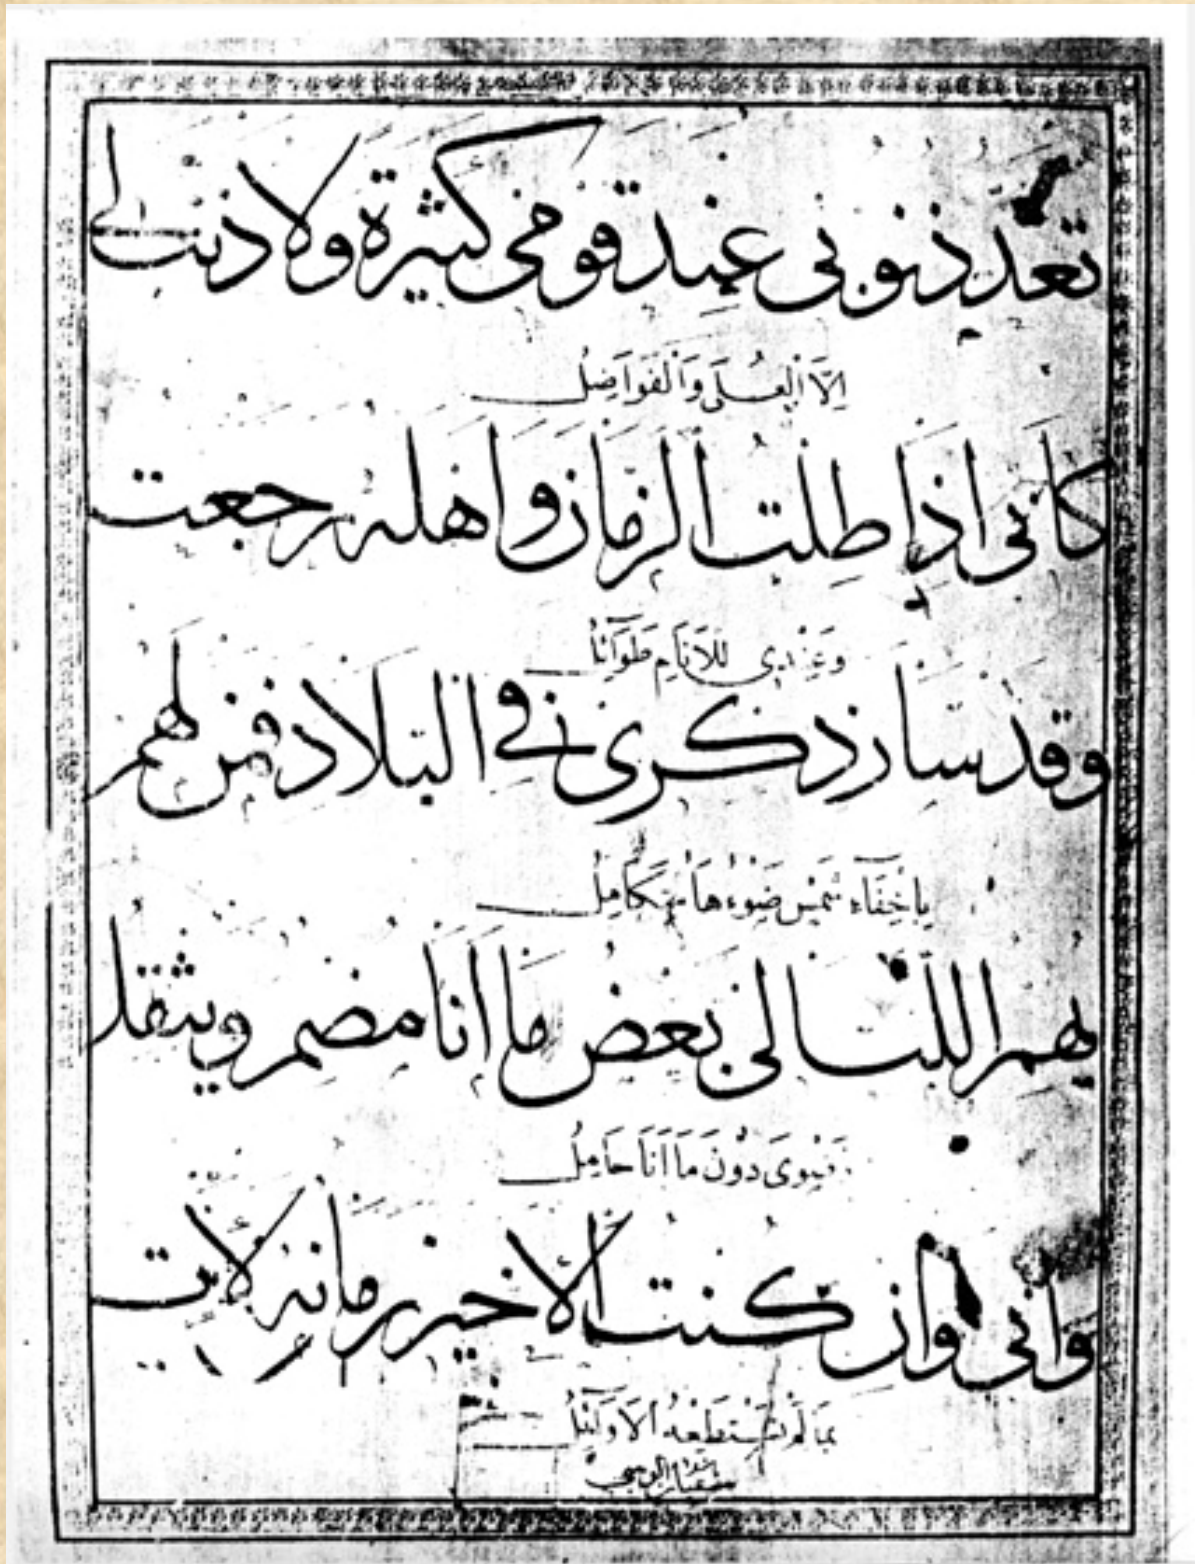 تعد ذنوبي عند قومي كثيرة ولا ذنب لي
اِلَّا الْعُلَى وَالْفَوَاضِلُ
كأني اذا طلت الزمان واهله رجعت
وَعِنْدِي لِلاَنَامِ طَوَآئِلُ
وقد سار ذكري في البلاد فمن لهم
بِاِخْفَآءِ شَمْسٍ ضَوْءُهَا مُتَكَامِلُ
يهم الليالي بعض ما انا مضمر ويثقل
رَضْوَى دُوْنَ مَا اَنَا حَامِلُ
واني وان كنت الاخير زمانه لآت
بِمَا لَمْ تَسْتَطِعْهُ الاَوَآئِلُ